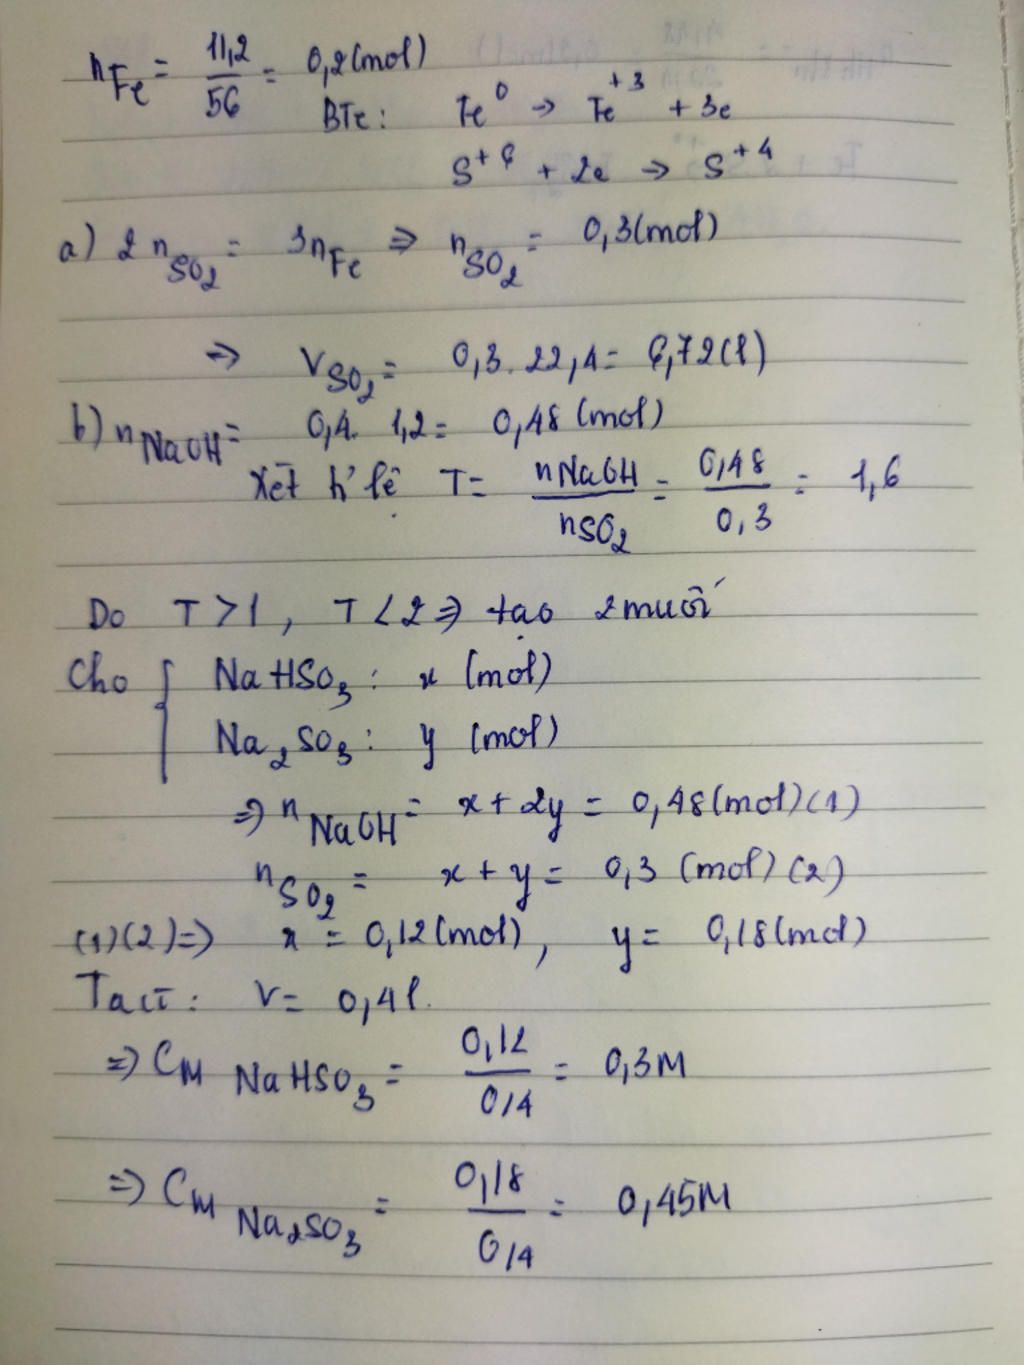 nFe = 11,2/56 = 0,2(mol)
BTe: Fe⁰ → Fe⁺³ + 3e
S⁺⁶ + 2e → S⁺⁴
a) 2nSO₂ = 3nFe ⇒ nSO₂ = 0,3(mol)
⇒ VSO₂ = 0,3. 22,4 = 6,72(l)
b) nNaOH = 0,4. 1,2 = 0,48 (mol)
Xét tỉ lệ T = nNaOH/nSO₂ = 0,48/0,3 = 1,6
Do T>1, T<2 ⇒ tạo 2 muối
Cho { NaHSO₃: x (mol)
Na₂SO₃: y (mol)
⇒ nNaOH = x + 2y = 0,48(mol)(1)
nSO₂ = x + y = 0,3 (mol) (2)
(1)(2) ⇒ x = 0,12(mol), y = 0,18(mol)
V = 0,4l.
⇒ CM NaHSO₃ = 0,12/0,4 = 0,3M
⇒ CM Na₂SO₃ = 0,18/0,4 = 0,45M